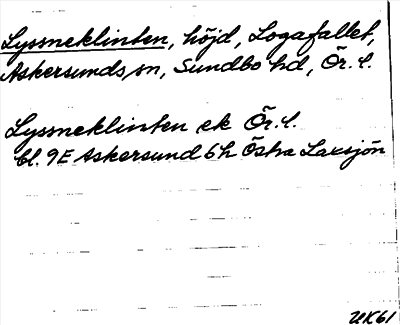 Lyssneklinten, höjd, Logafallet,
Askersunds sn, Sundbo hd, Ör. l.
Lyssneklinten ek Ör. l.
bl. 9E Askersund 6h Östra Laxsjön
UK61